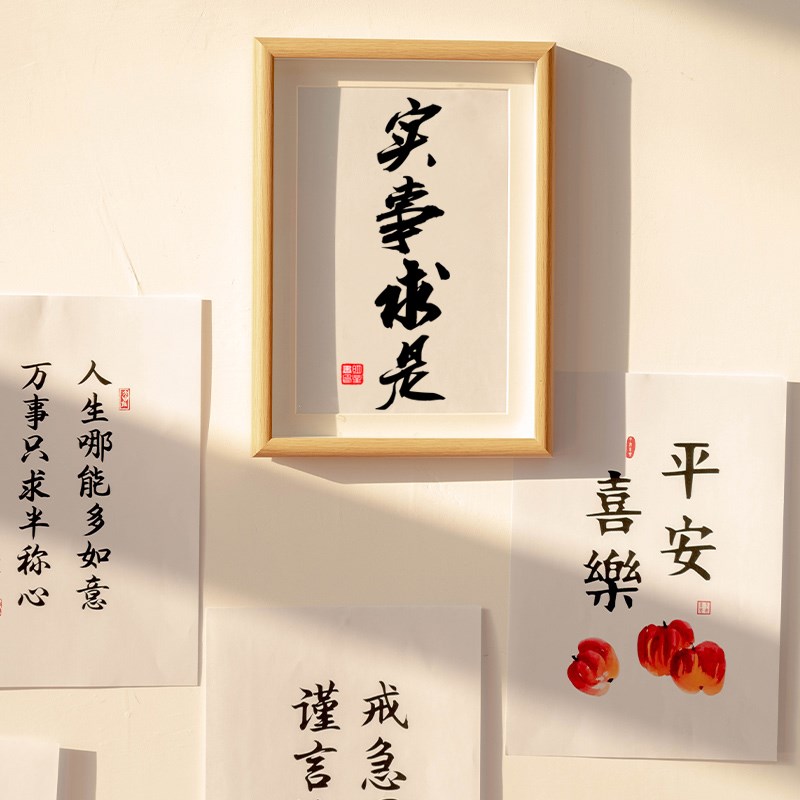 实事求是
人生哪能多如意
万事只求半称心
平安
喜樂
戒急
谨言